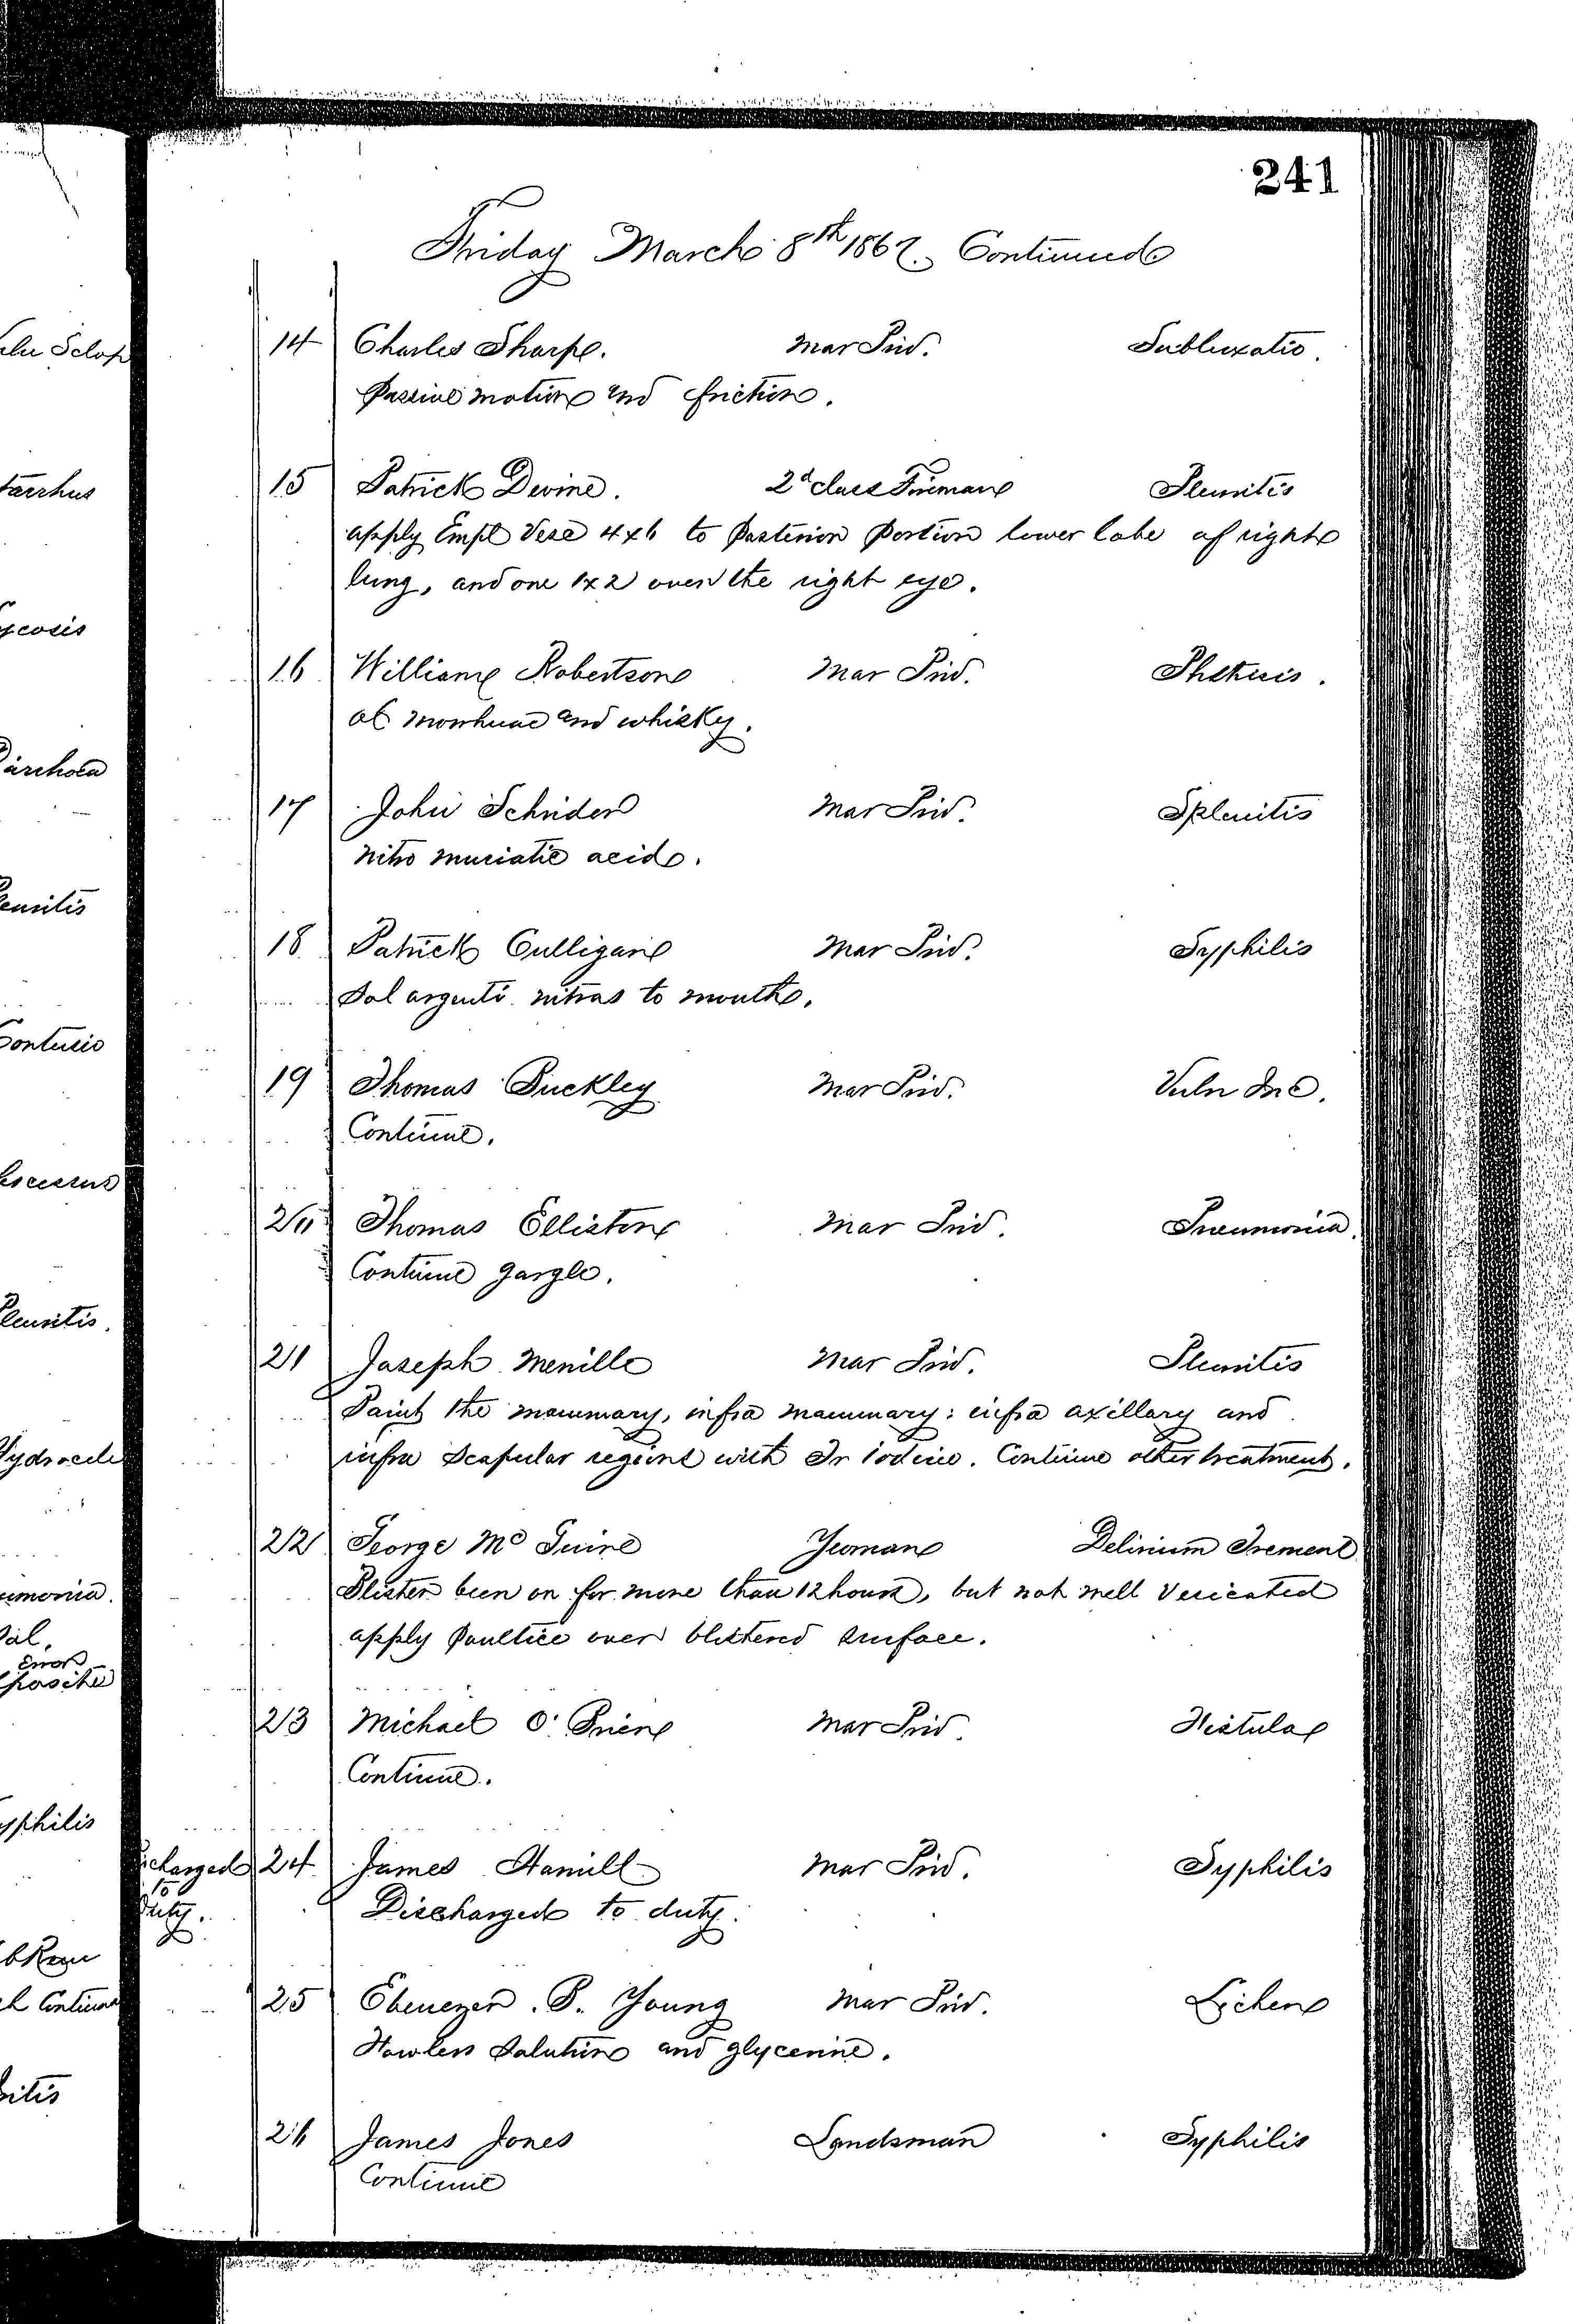 241
Friday March 8th 1867. Continued
14 Charles Sharpe. Mar Priv. Subluxatio.
Passive motion and friction.
15 Patrick Devine. 2d class Fireman Pleuritis
apply Empl Vesc 4x6 to Posterior Portion lower lobe of right
lung, and one 1x2 over the right eye.
16 William Robertson Mar Priv. Phthisis.
ol morrhuae and whisky.
17 John Schrider Mar Priv. Splenitis
nitro muriatic acid.
18 Patrick Culligan Mar Priv. Syphilis
Sol argenti nitras to mouth.
19 Thomas Buckley Mar Priv. Vuln Inc.
Continue.
20 Thomas Elliston Mar Priv. Pneumonia.
Continue gargle.
21 Joseph Merrille Mar Priv. Pleuritis
Paint the mammary, infra mammary; infra axillary and
infra Scapular regions with Tr Iodine. Continue other treatment.
22 George Mc Guire Yeoman Delirium Tremens
Blister been on for more than 12 hours, but not well Vesicated
apply Poultice over blistered surface.
23 Michael O'Brien Mar Priv. Fistula
Continue.
24 James Hamill Mar Priv. Syphilis
Discharged to duty.
25 Ebenezer. P. Young Mar Priv. Lichen
Fowlers Solution and glycerine.
26 James Jones Landsman Syphilis
Continue